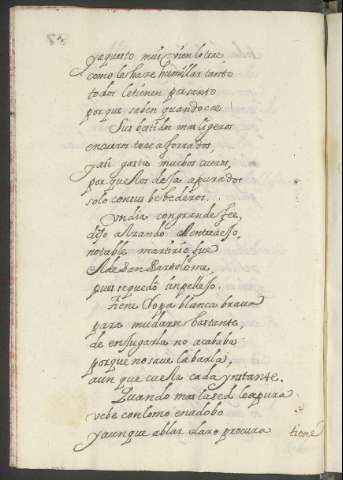 yaquanto mui vien lo trae
como la haze humillar tanto
todos le tienen por santo
porque saben quando cae
Sus botidos mas ligeros
en cueros trae aforrados,
y assi gasta muchos cueros,
por que los deja apurados
solo con sus bebederos.
Un dia con grande fee,
dijo Alzando
notable martirio fue
el de San Bartolome,
pues se quedo sin pellejo.
Tiene Ropa blanca brava
para mudarse bastante,
de enjugarla no acababa
porque no save labarla,
aun que cuesta cada ynstante.
Quando mas la sed le apura
vebe con lomo en adobo
y aunque ablar claro procura
tiene